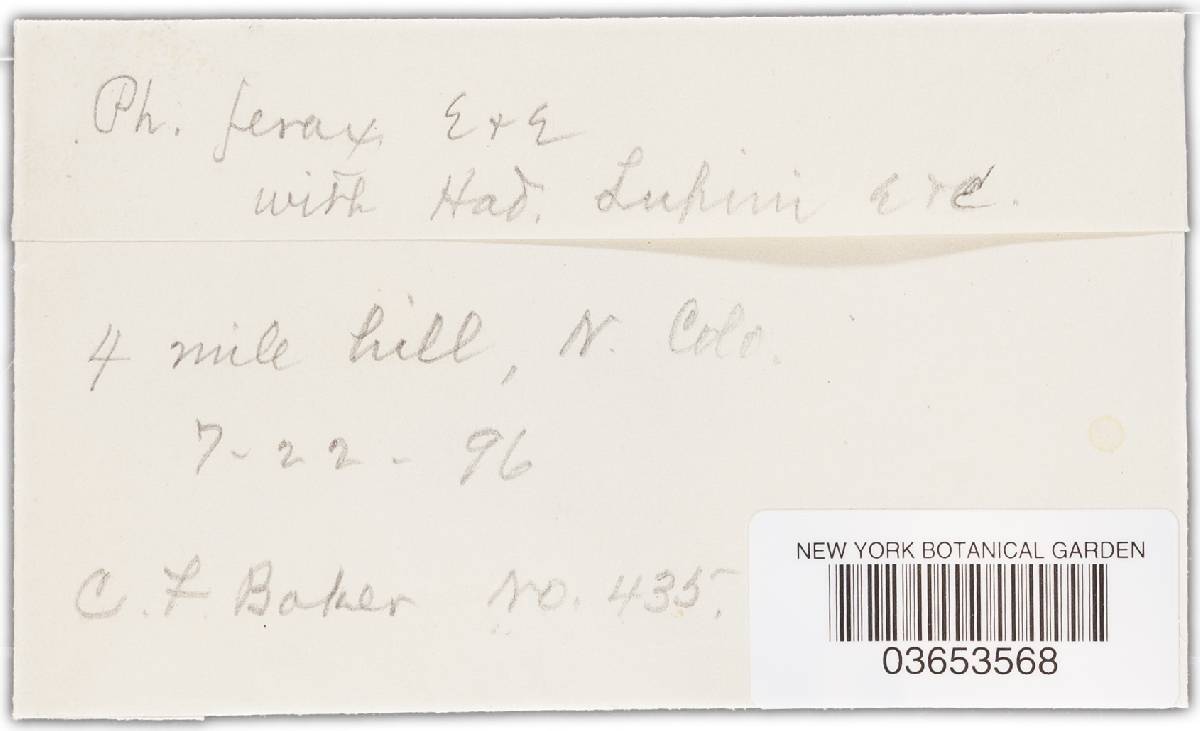 Ph. ferax. E & E
with Had. Lupini E & E.
4 mile hill, N. Colo.
7-22-96
C. F. Baker No. 435.
NEW YORK BOTANICAL GARDEN
03653568